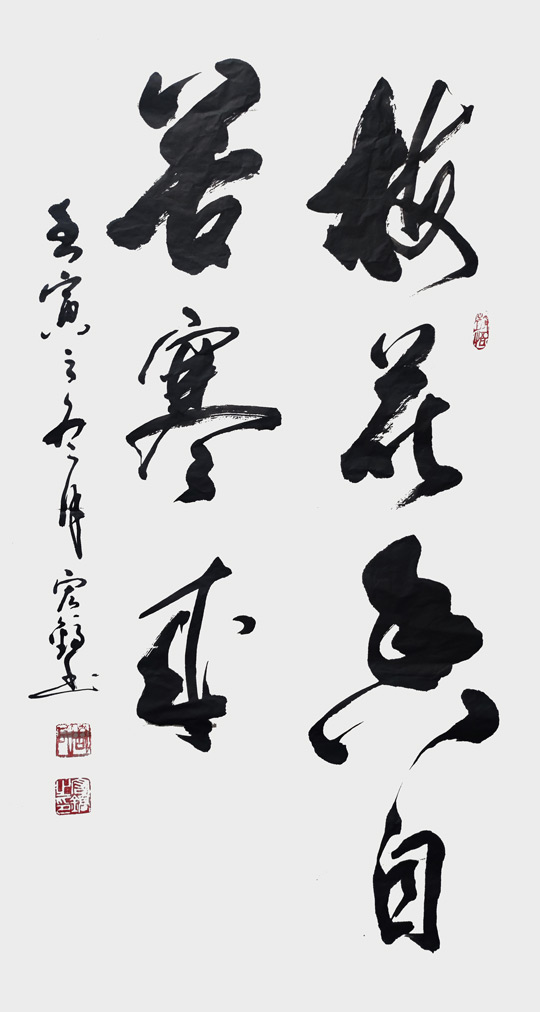 梅花香自
苦寒来
壬寅之冬月宏鹤书